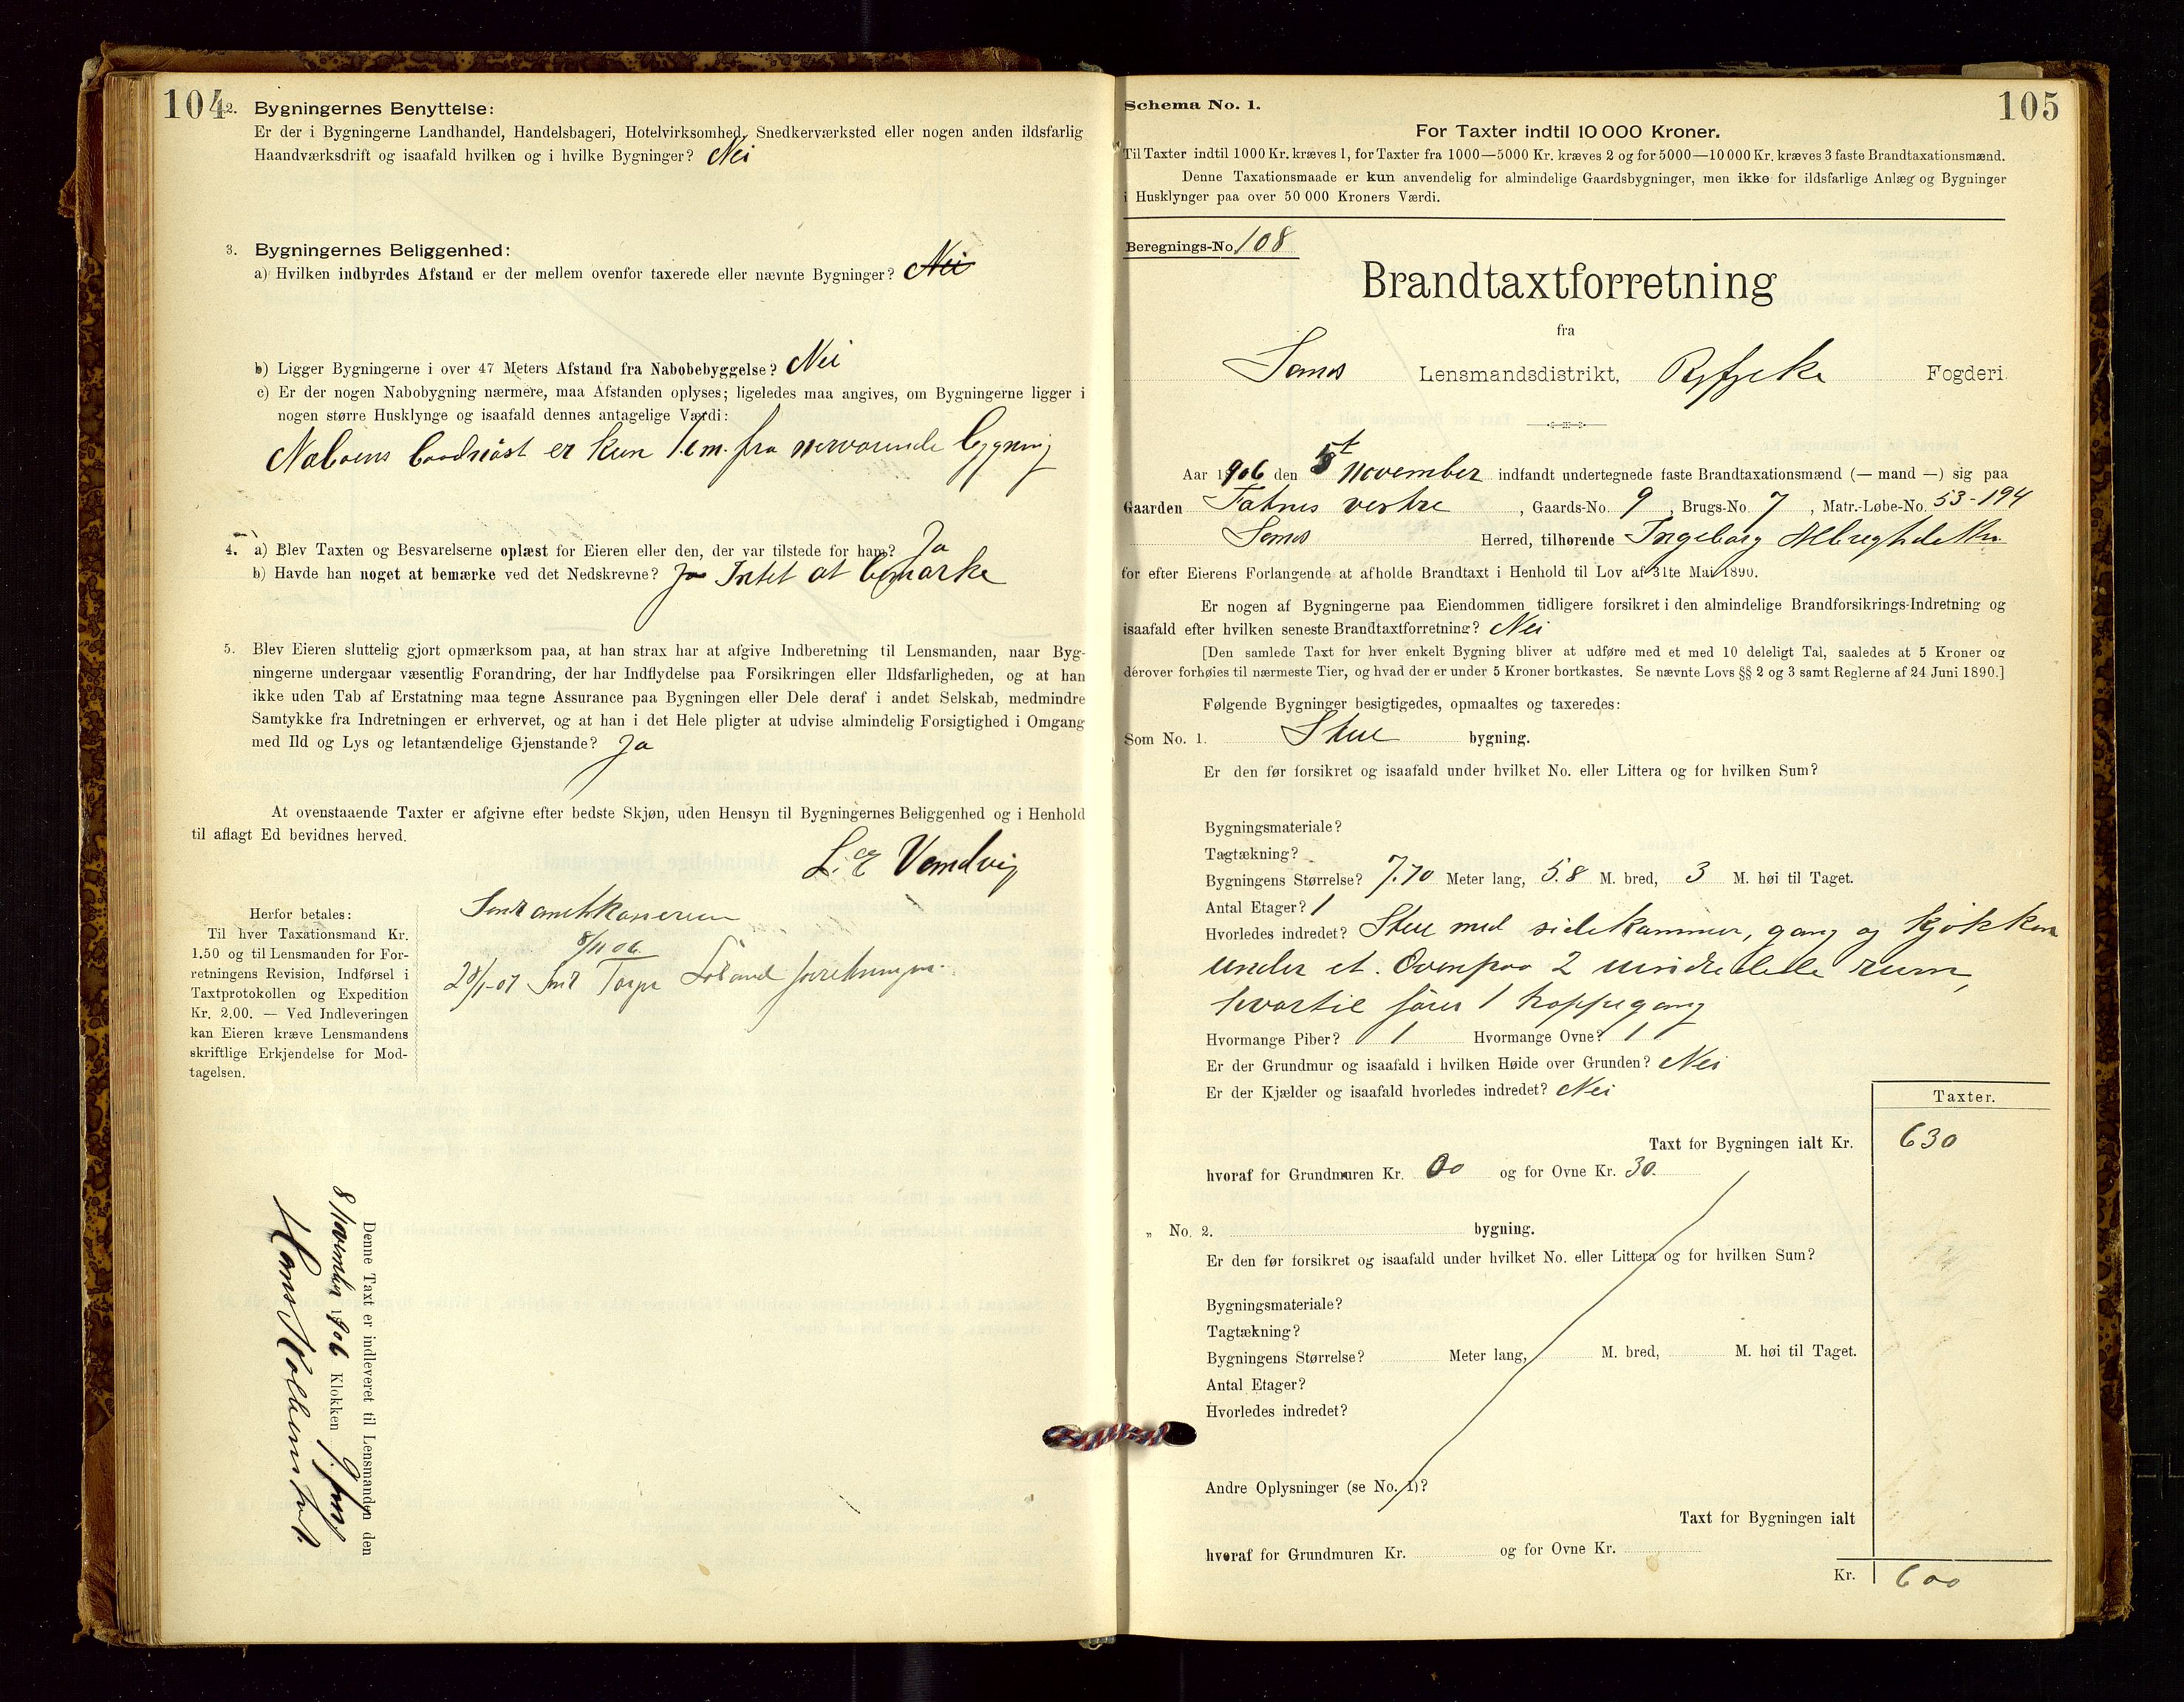 104
2. Bygningernes Benyttelse:
Er der i Bygningerne Landhandel, Handelsbageri, Hotelvirksomhed, Snedkerværksted eller nogen anden ildsfarlig
Haandværksdrift og isaafald hvilken og i hvilke Bygninger? Nei
3. Bygningernes Beliggenhed:
a) Hvilken indbyrdes Afstand er der mellem ovenfor taxerede eller nævnte Bygninger? Nei
b) Ligger Bygningerne i over 47 Meters Afstand fra Nabobebyggelse? Nei
c) Er der nogen Nabobygning nærmere, maa Afstanden oplyses; ligeledes maa angives, om Bygningerne ligger i
nogen større Husklynge og isaafald dennes antagelige Værdi:
Naboens baadnøst er kun 1.6 m. fra nerværende bygning
4. a) Blev Taxten og Besvarelserne oplæst for Eieren eller den, der var tilstede for ham? Ja
b) Havde han noget at bemærke ved det Nedskrevne? Ja Intet at bemærke
5. Blev Eieren sluttelig gjort opmærksom paa, at han strax har at afgive Indberetning til Lensmanden, naar Byg-
ningerne undergaar væsentlig Forandring, der har Indflydelse paa Forsikringen eller Ildsfarligheden, og at han
ikke uden Tab af Erstatning maa tegne Assurance paa Bygningen eller Dele deraf i andet Selskab, medmindre
Samtykke fra Indretningen er erhvervet, og at han i det Hele pligter at udvise almindelig Forsigtighed i Omgang
med Ild og Lys og letantændelige Gjenstande? Ja
At ovenstaaende Taxter er afgivne efter bedste Skjøn, uden Hensyn til Bygningernes Beliggenhed og i Henhold
til aflagt Ed bevidnes herved.
Herfor betales:
Til hver Taxationsmand Kr.
1.50 og til Lensmanden for For-
retningens Revision, Indførsel i
Taxtprotokollen og Expedition
Kr. 2.00. — Ved Indleveringen
kan Eieren kræve Lensmandens
skriftlige Erkjendelse for Mod-
tagelsen.
8/11 06
28/1-07
Denne Taxt er indleveret til Lensmanden den
8 November 1906 Klokken 9 fm
105
Schema No. 1.
For Taxter indtil 10 000 Kroner.
Til Taxter indtil 1000 Kr. kræves 1, for Taxter fra 1000—5000 Kr. kræves 2 og for 5000—10 000 Kr. kræves 3 faste Brandtaxationsmænd.
Denne Taxationsmaade er kun anvendelig for almindelige Gaardsbygninger, men ikke for ildsfarlige Anlæg og Bygninger
i Husklynger paa over 50 000 Kroners Værdi.
Beregnings-No. 108
Brandtaxtforretning
fra
Lensmandsdistrikt, Ryfylke Fogderi.
Aar 1906 den 5t November indfandt undertegnede faste Brandtaxationsmænd (— mand —) sig paa
Gaarden vestre, Gaards-No. 9, Brugs-No. 7, Matr.-Løbe-No. 53-194
Herred, tilhørende Ingeborg
for efter Eierens Forlangende at afholde Brandtaxt i Henhold til Lov af 31te Mai 1890.
Er nogen af Bygningerne paa Eiendommen tidligere forsikret i den almindelige Brandforsikrings-Indretning og
isaafald efter hvilken seneste Brandtaxtforretning? Nei
[Den samlede Taxt for hver enkelt Bygning bliver at udføre med et med 10 deleligt Tal, saaledes at 5 Kroner og
derover forhøies til nærmeste Tier, og hvad der er under 5 Kroner bortkastes. Se nævnte Lovs §§ 2 og 3 samt Reglerne af 24 Juni 1890.]
Følgende Bygninger besigtigedes, opmaaltes og taxeredes:
Som No. 1. Stue bygning.
Er den før forsikret og isaafald under hvilket No. eller Littera og for hvilken Sum?
Bygningsmateriale?
Tagtækning?
Bygningens Størrelse? 7.70 Meter lang, 5.8 M. bred, 3 M. høi til Taget.
Antal Etager? 1
Hvorledes indredet? Stue med sidekammer, gang og kjøkken
under et. Ovenpaa 2 uindredede rum,
hvortil fører 1 trappegang
Hvormange Piber? 1 Hvormange Ovne? 1
Er der Grundmur og isaafald i hvilken Høide over Grunden? Nei
Er der Kjælder og isaafald hvorledes indredet? Nei
Taxter.
Taxt for Bygningen ialt Kr. 630
hvoraf for Grundmuren Kr. 00 og for Ovne Kr. 30.
„ No. 2. bygning.
Er den før forsikret og isaafald under hvilket No. eller Littera og for hvilken Sum?
Bygningsmateriale?
Tagtækning?
Bygningens Størrelse? Meter lang, M. bred, M. høi til Taget.
Antal Etager?
Hvorledes indredet?
Andre Oplysninger (se No. 1)?
Taxt for Bygningen ialt
hvoraf for Grundmuren Kr. og for Ovne Kr.
Kr. 600